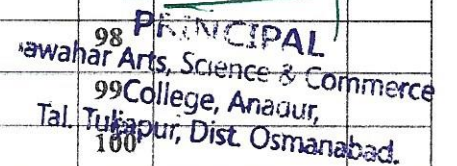 98 PRINCIPAL
Jawahar Arts, Science & Commerce
99 College, Anadur,
Tal. Tuljapur, Dist. Osmanabad.
100